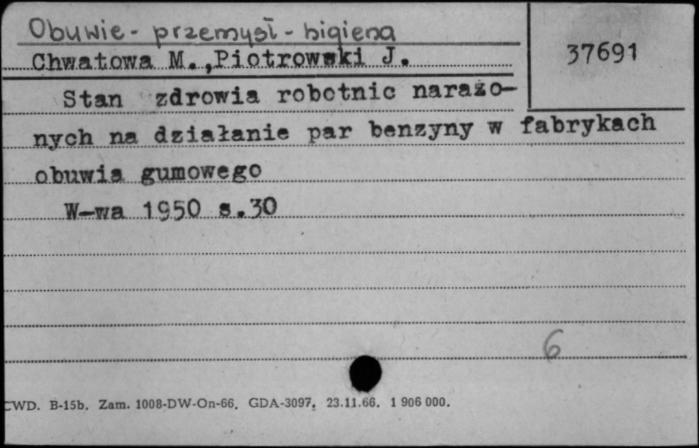 Obuwie - przemysł - higiena
37691
Chwatowa M.,Piotrowski J.
Stan zdrowia robotnic narażo-
nych na działanie par benzyny w fabrykach
obuwia gumowego
W-wa 1950 s.30
6
CWD. B-15b. Zam. 1008-DW-On-66. GDA-3097, 23.11.66. 1 906 000.